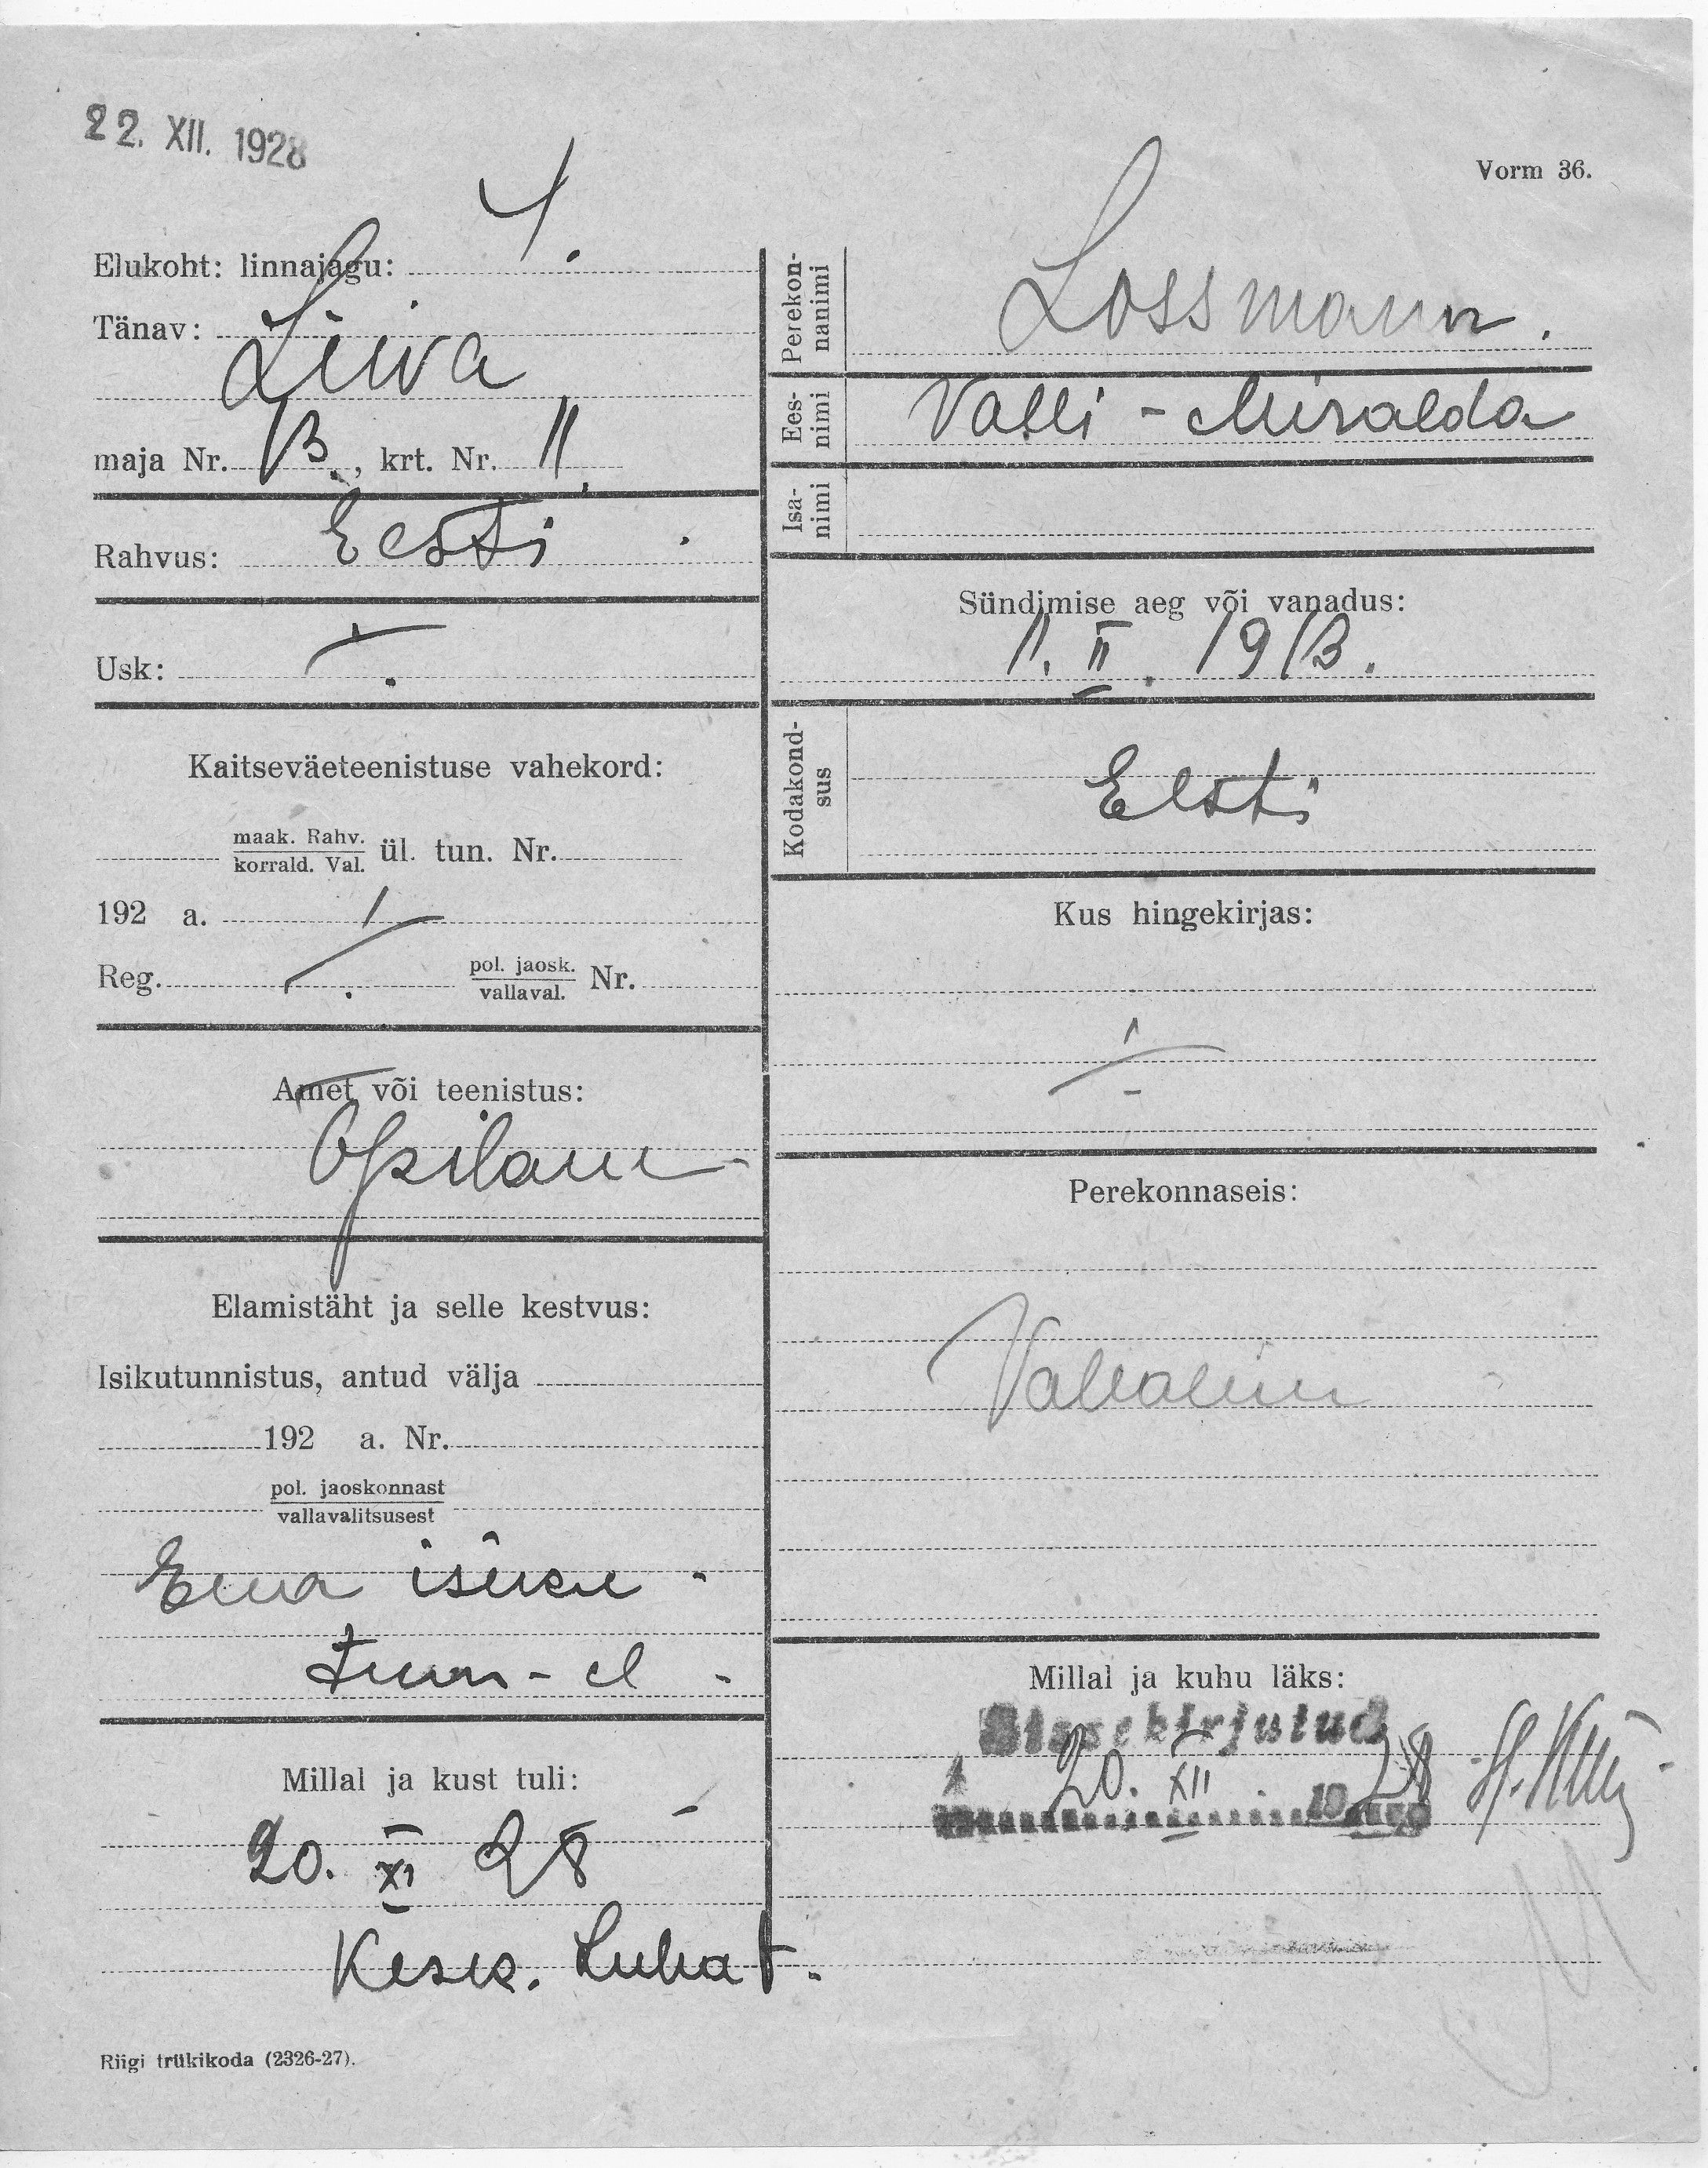 22. XII. 1928
Vorm 36.
Elukoht: linnajagu: 4.
Tänav: Liiva
maja Nr. 13., krt. Nr. 11.
Rahvus: Eesti
Usk:
Kaitseväeteenistuse vahekord:
maak. Rahv.
korrald. Val. ül. tun. Nr.
192 a.
Reg. pol. jaosk.
vallaval. Nr.
Amet või teenistus:
Õpilane
Elamistäht ja selle kestvus:
Isikutunnistus, antud välja
192 a. Nr.
pol. jaoskonnast
vallavalitsusest
Ema isiku
tunn-el
Millal ja kust tuli:
20. XI 28
Kesk. Luhat.
Riigi trükikoda (2326-27).
Perekon-
nanimi
Lossmann.
Ees-
nimi
Valli-Miralda
Isa-
nimi
Sündimise aeg või vanadus:
11. II. 1913.
Kodakond-
sus
Eesti
Kus hingekirjas:
Perekonnaseis:
Vallaline
Millal ja kuhu läks:
Sissekirjutud
20. XII. 1928